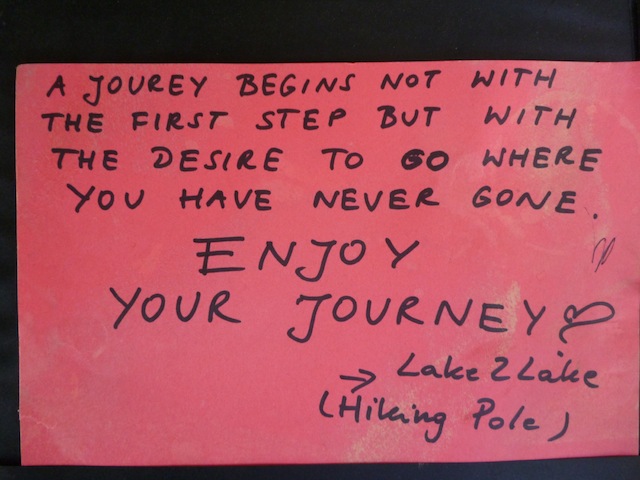 A JOUREY BEGINS NOT WITH
THE FIRST STEP BUT WITH
THE DESIRE TO GO WHERE
YOU HAVE NEVER GONE.
ENJOY
YOUR JOURNEY
→ Lake 2 Lake
(Hiking Pole)